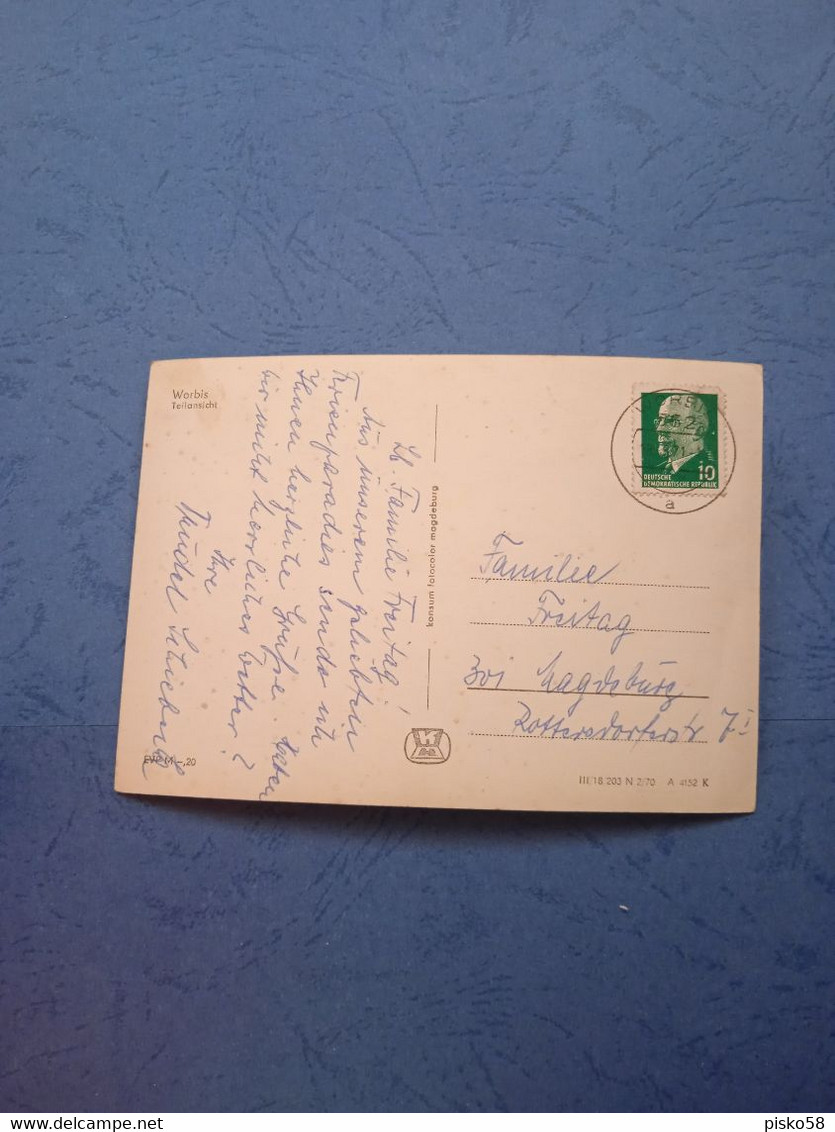 Worbis
Teilansicht
Lb. Familie Freitag!
Aus unserem geliebten
Ferienparadies sende ich
Ihnen herzliche Grüße. Haben
wir nicht herrliches Wetter?
Ihre
Trudel
EVP M -,20
konsum fotocolor magdeburg
10
DEUTSCHE
DEMOKRATISCHE REPUBLIK
a
Familie
Freitag
301 Magdeburg
Rottersdorferstr 7
III 18 203 N 2/70 A 4152 K
delcampe.net
pisko58